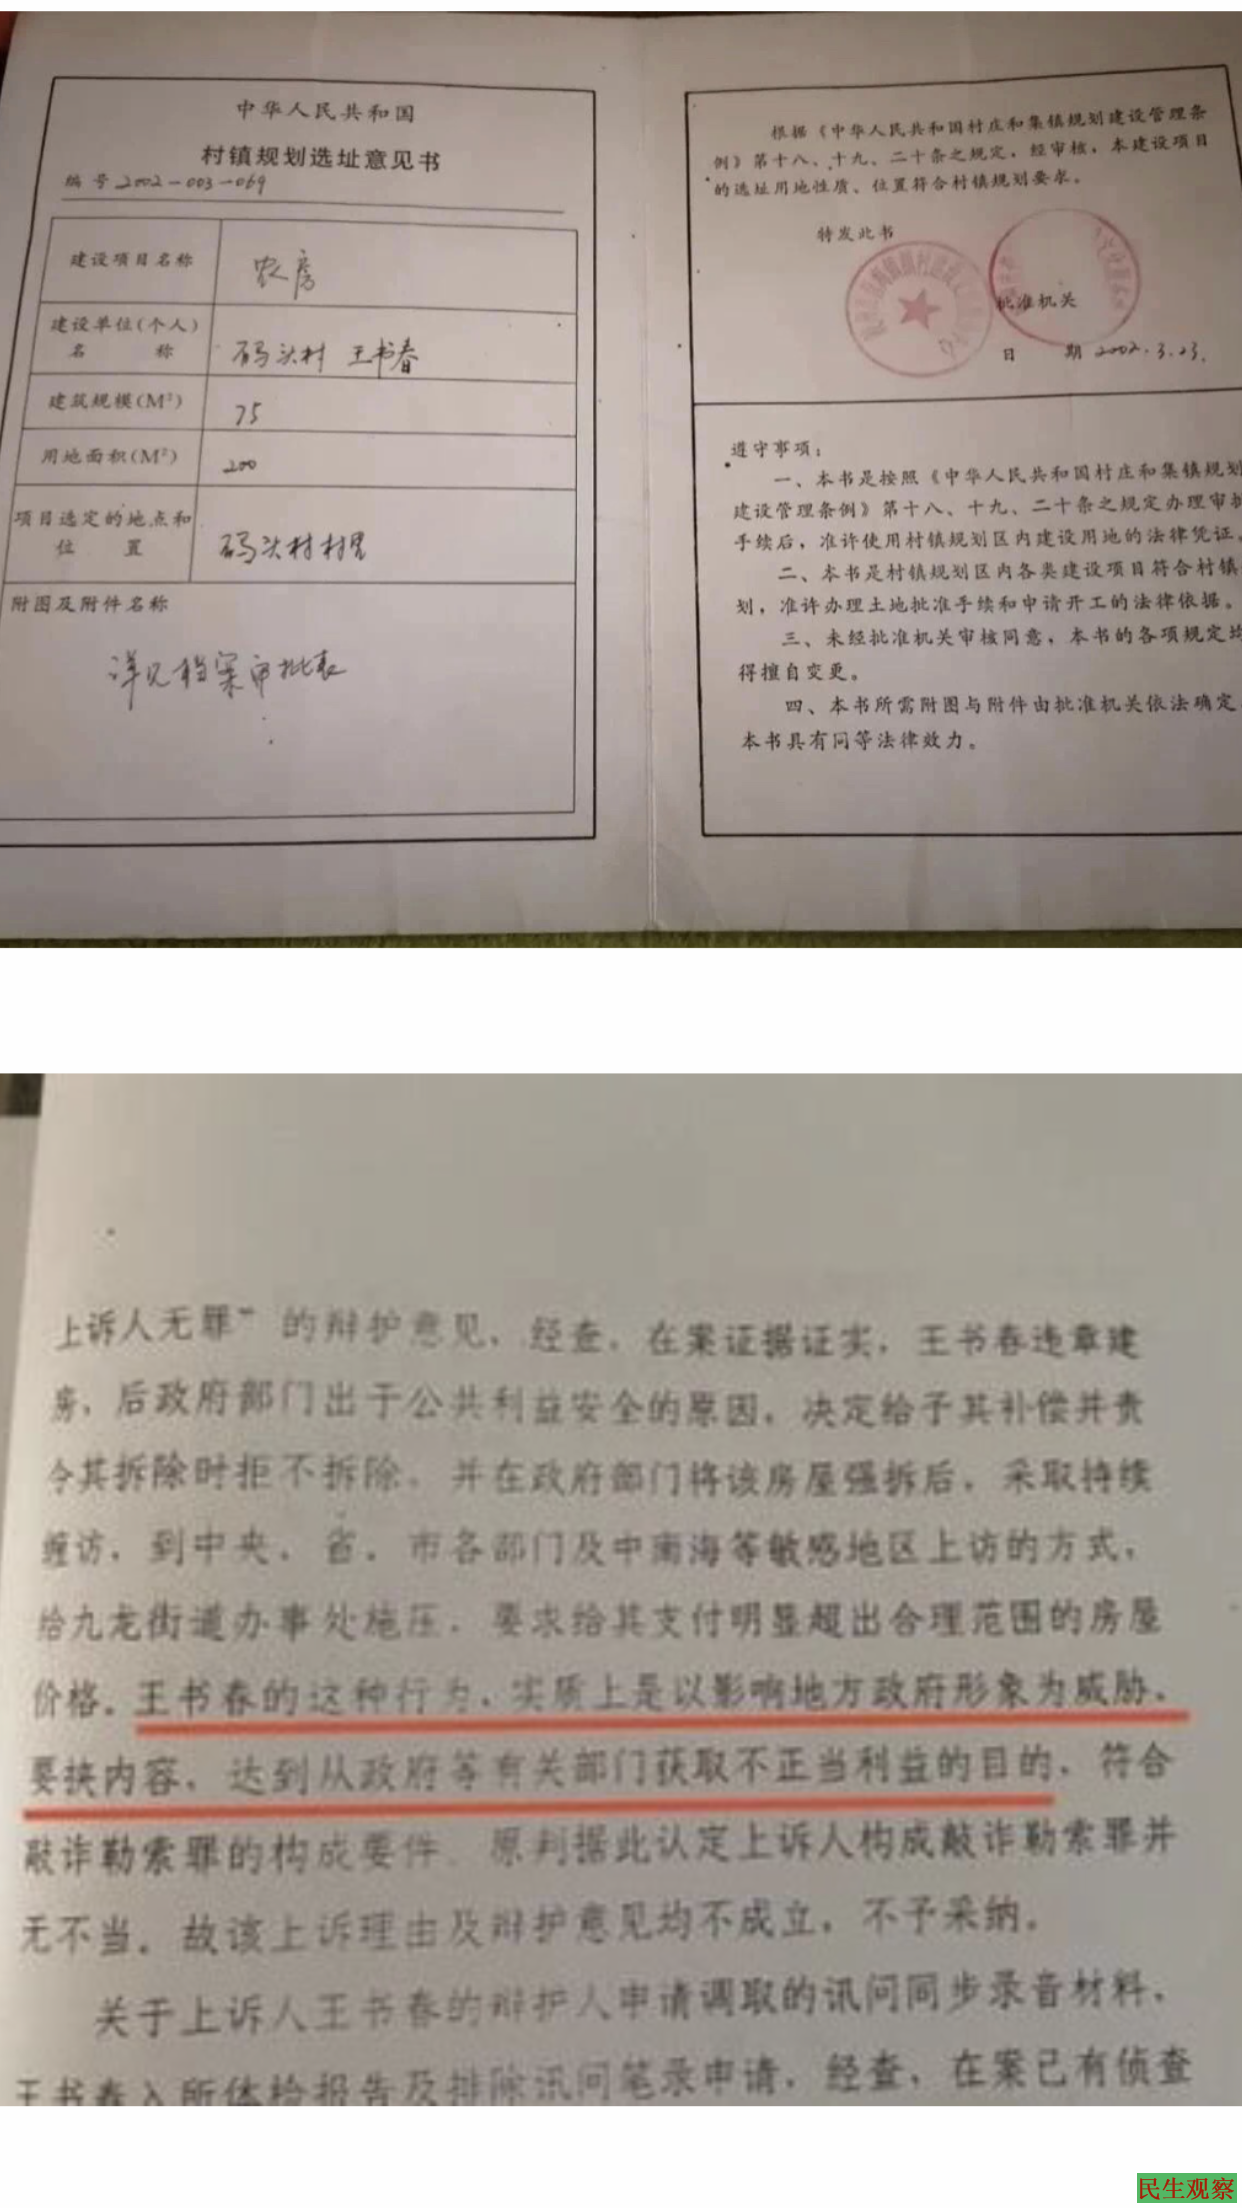 中华人民共和国
村镇规划选址意见书
编号 2002-003-069
建设项目名称 农房
建设单位(个人)名称 码头村 王书春
建筑规模(M²) 75
用地面积(M²) 200
项目选定的地点和位置 码头村村里
附图及附件名称
详见档案审批表
根据《中华人民共和国村庄和集镇规划建设管理条
例》第十八、十九、二十条之规定,经审核,本建设项目
的选址用地性质、位置符合村镇规划要求。
特发此书
批准机关
日 期 2002.3.23.
遵守事项:
一、本书是按照《中华人民共和国村庄和集镇规划
建设管理条例》第十八、十九、二十条之规定办理审批
手续后,准许使用村镇规划区内建设用地的法律凭证。
二、本书是村镇规划区内各类建设项目符合村镇
划,准许办理土地批准手续和申请开工的法律依据。
三、未经批准机关审核同意,本书的各项规定均
得擅自变更。
四、本书所需附图与附件由批准机关依法确定,
本书具有同等法律效力。
上诉人无罪"的辩护意见,经查,在案证据证实,王书春违章建
房,后政府部门出于公共利益安全的原因,决定给予其补偿并责
令其拆除时拒不拆除,并在政府部门将该房屋强拆后,采取持续
缠访,到中央、省、市各部门及中南海等敏感地区上访的方式,
给九龙街道办事处施压,要求给其支付明显超出合理范围的房屋
价格。王书春的这种行为,实质上是以影响地方政府形象为威胁、
要挟内容,达到从政府等有关部门获取不正当利益的目的,符合
敲诈勒索罪的构成要件,原判据此认定上诉人构成敲诈勒索罪并
无不当。故该上诉理由及辩护意见均不成立,不予采纳。
关于上诉人王书春的辩护人申请调取的讯问同步录音材料、
王书春入所体检报告及排除讯问笔录申请,经查,在案已有侦查
民生观察